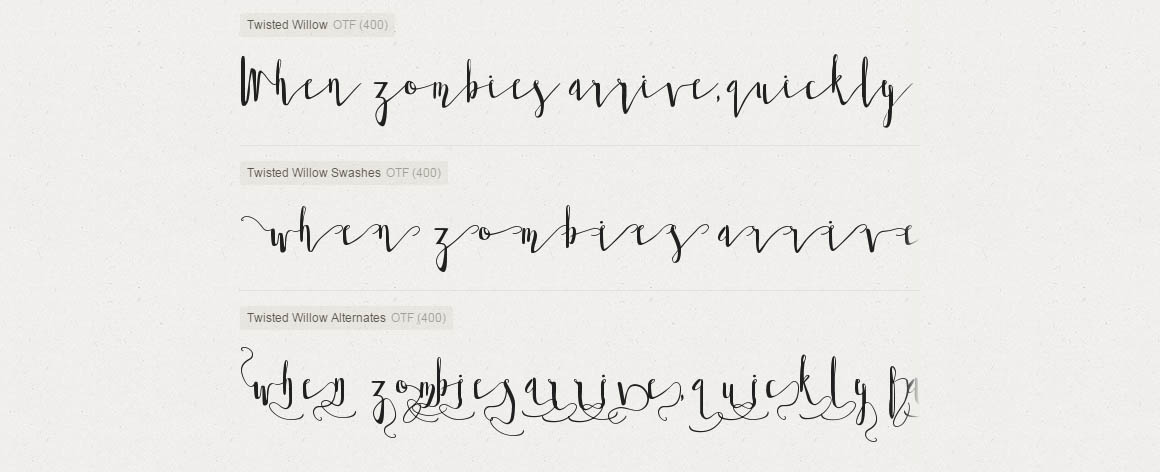 Twisted Willow OTF (400)
When zombies arrive, quickly
Twisted Willow Swashes OTF (400)
when zombies arrive
Twisted Willow Alternates OTF (400)
when zombies arrive, quickly